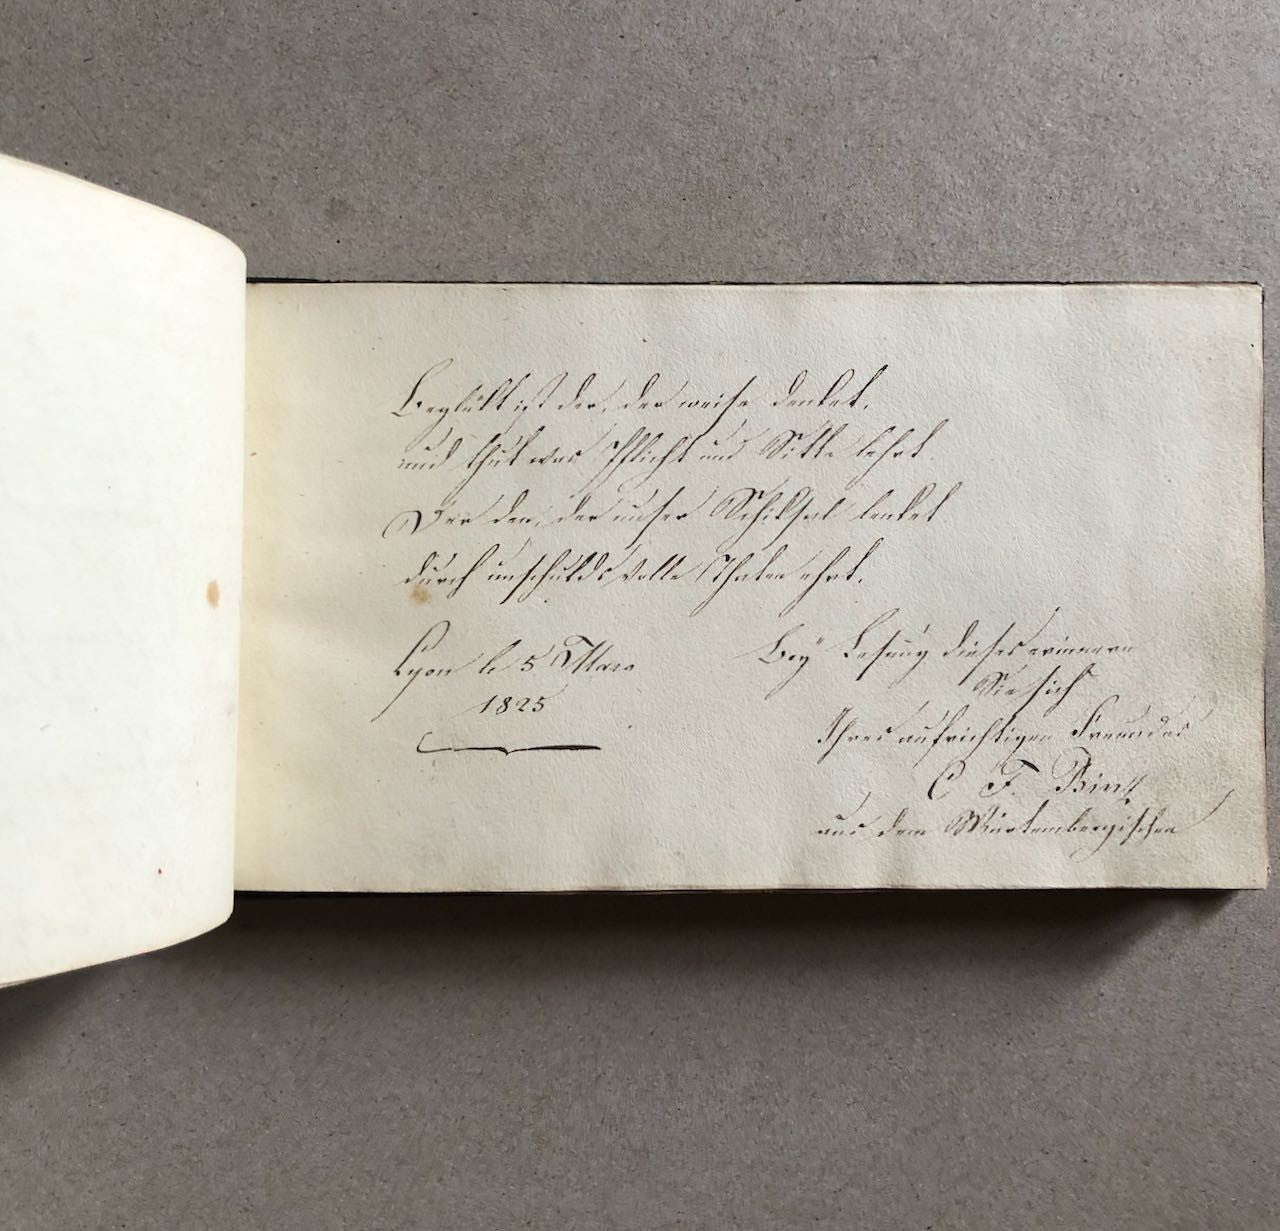 Beglükt ist der, der weise denket,
und thut was Pflicht und Sitte lehrt.
Der den, der unser Schiksal lenket
durch unschulds volle Thaten ehrt.
Lyon le 5 Mars
1825
Bey Lesung dieses erinnern
Sie sich
Ihres aufrichtigen Freundes
C F. Bintz
aus dem Würtembergischen